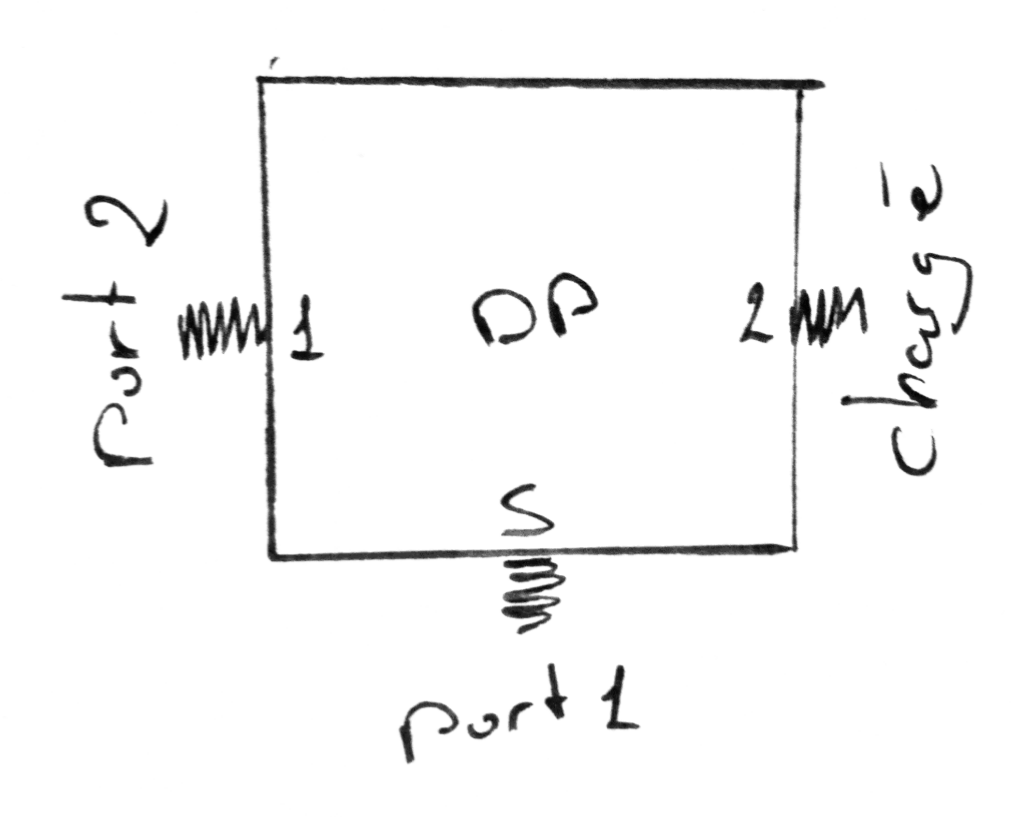 Port 2
1
DP
2
charge
S
port 1